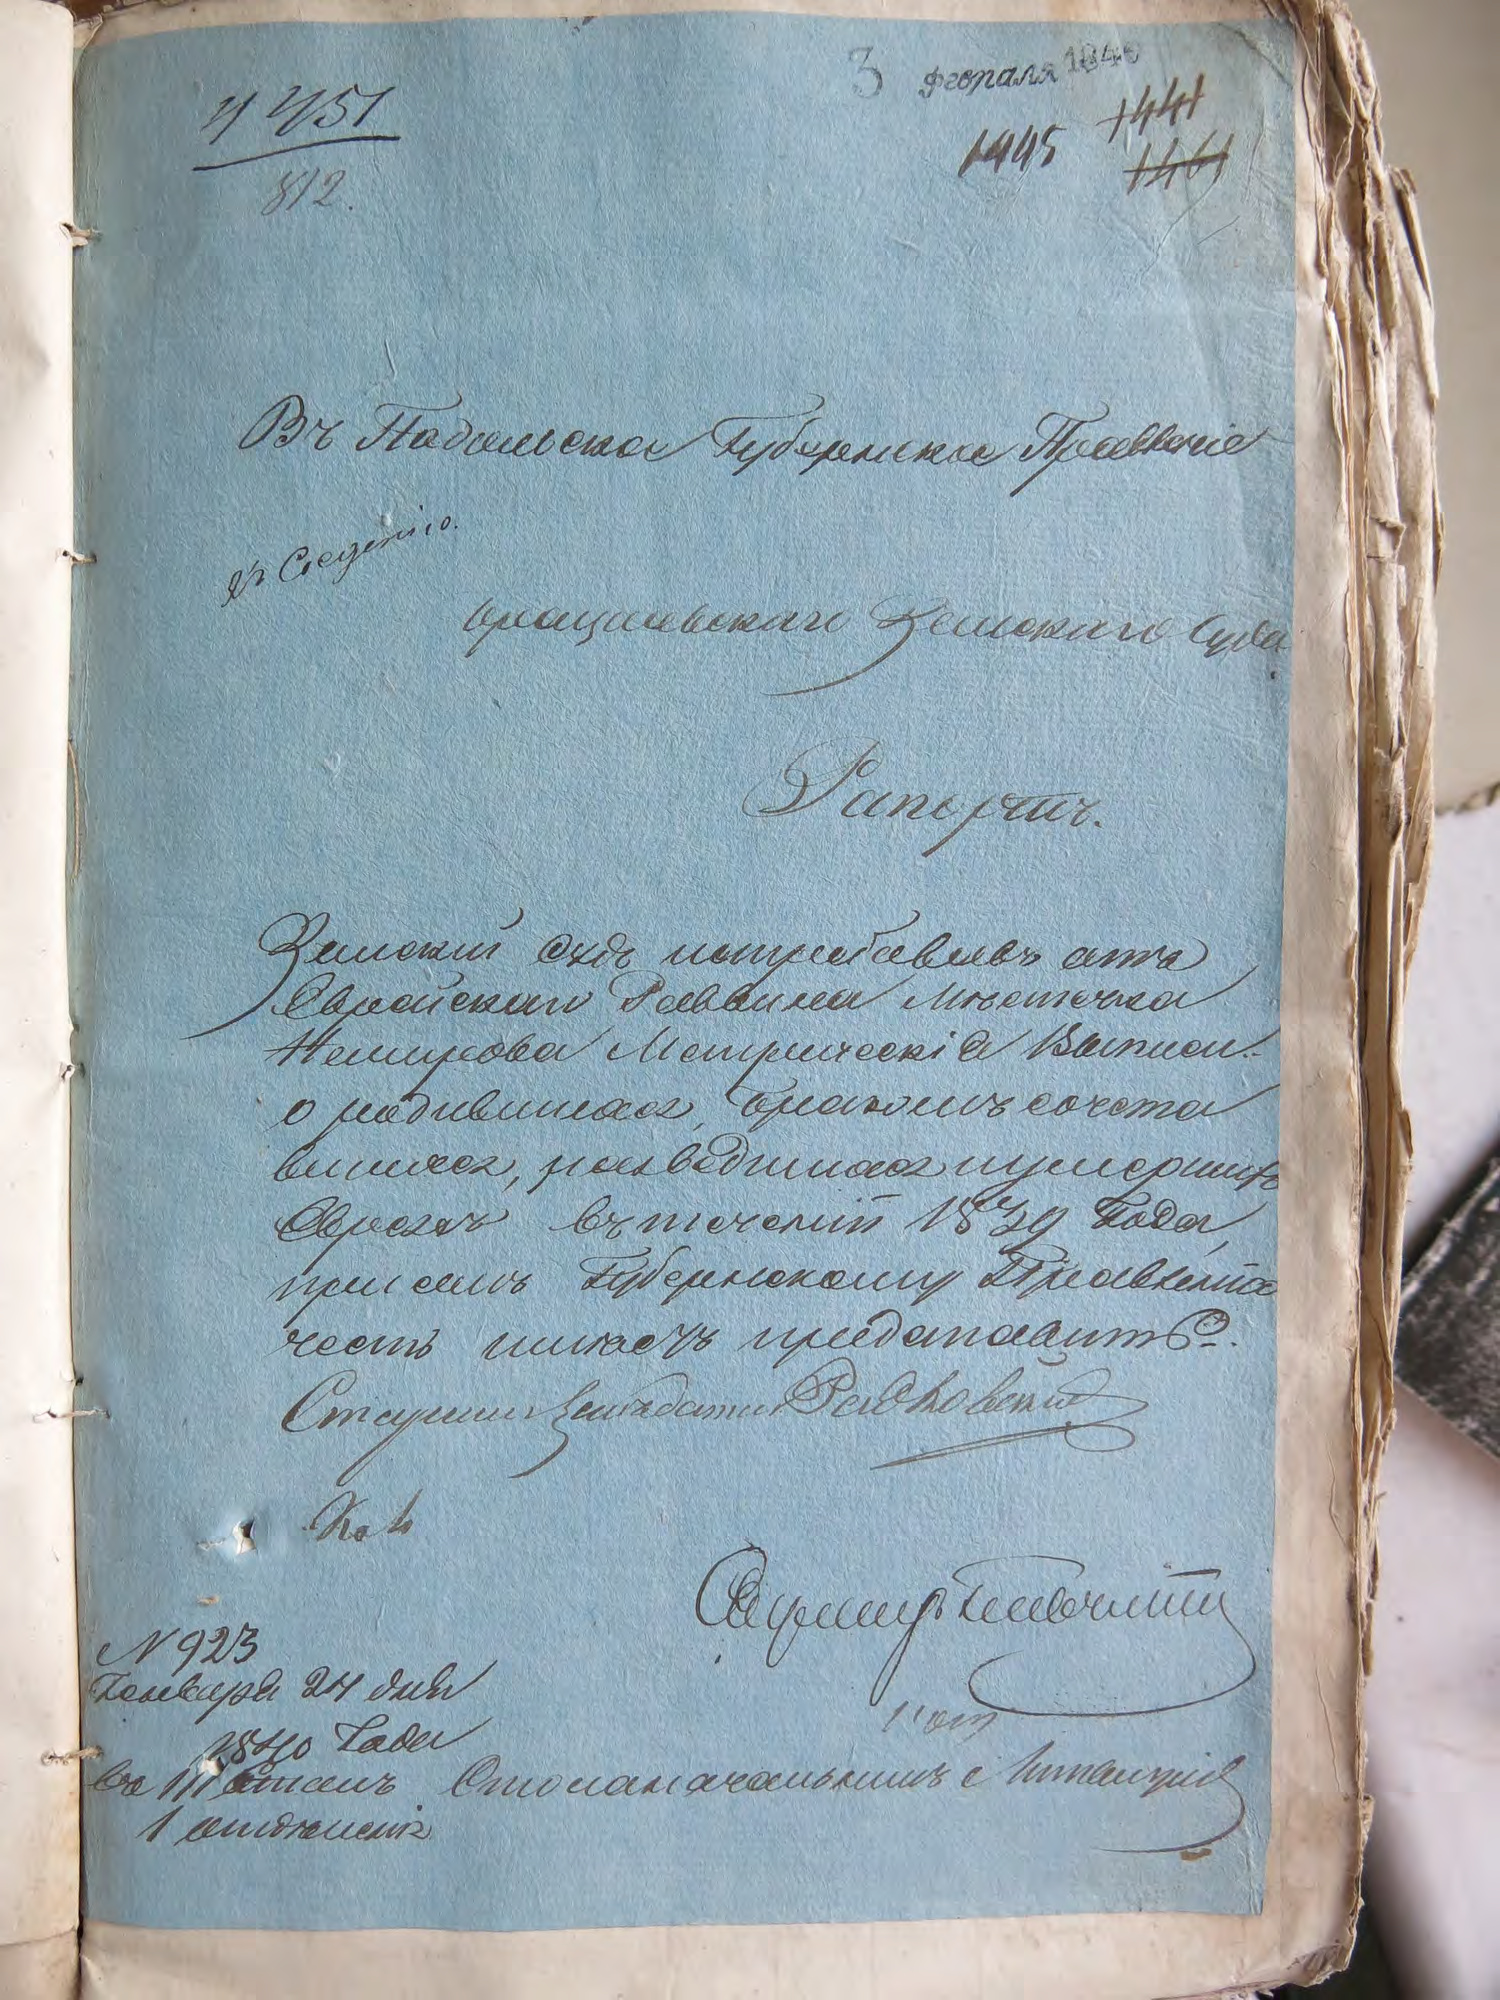 3 февраля 1840
4451
1445 1441
812.
1461
Въ Подольское Губернское Правленіе
Къ Сведенію.
Брацлавскаго Земскаго Суда
Рапортъ.
Земскій Судъ истребовавъ отъ
Еврейскаго Раввина Мѣстечка
Немирова Метрическія Выписи
о родившихся, бракомъ сочета
вшихся, разведшихся и умершихъ
Евреяхъ въ теченіи 1839 Года,
при семъ Губернскому Правленію
честь имѣетъ представить.
Старшій Засѣдатель Радковскій
№ 923
Генваря 24 дня
1840 Года
въ III Столъ Столоначальникъ
1 отдѣленія